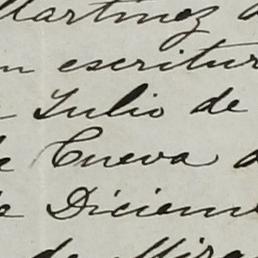 Martinez
escritur
Julio de
Cueva
Diciem
de Mira